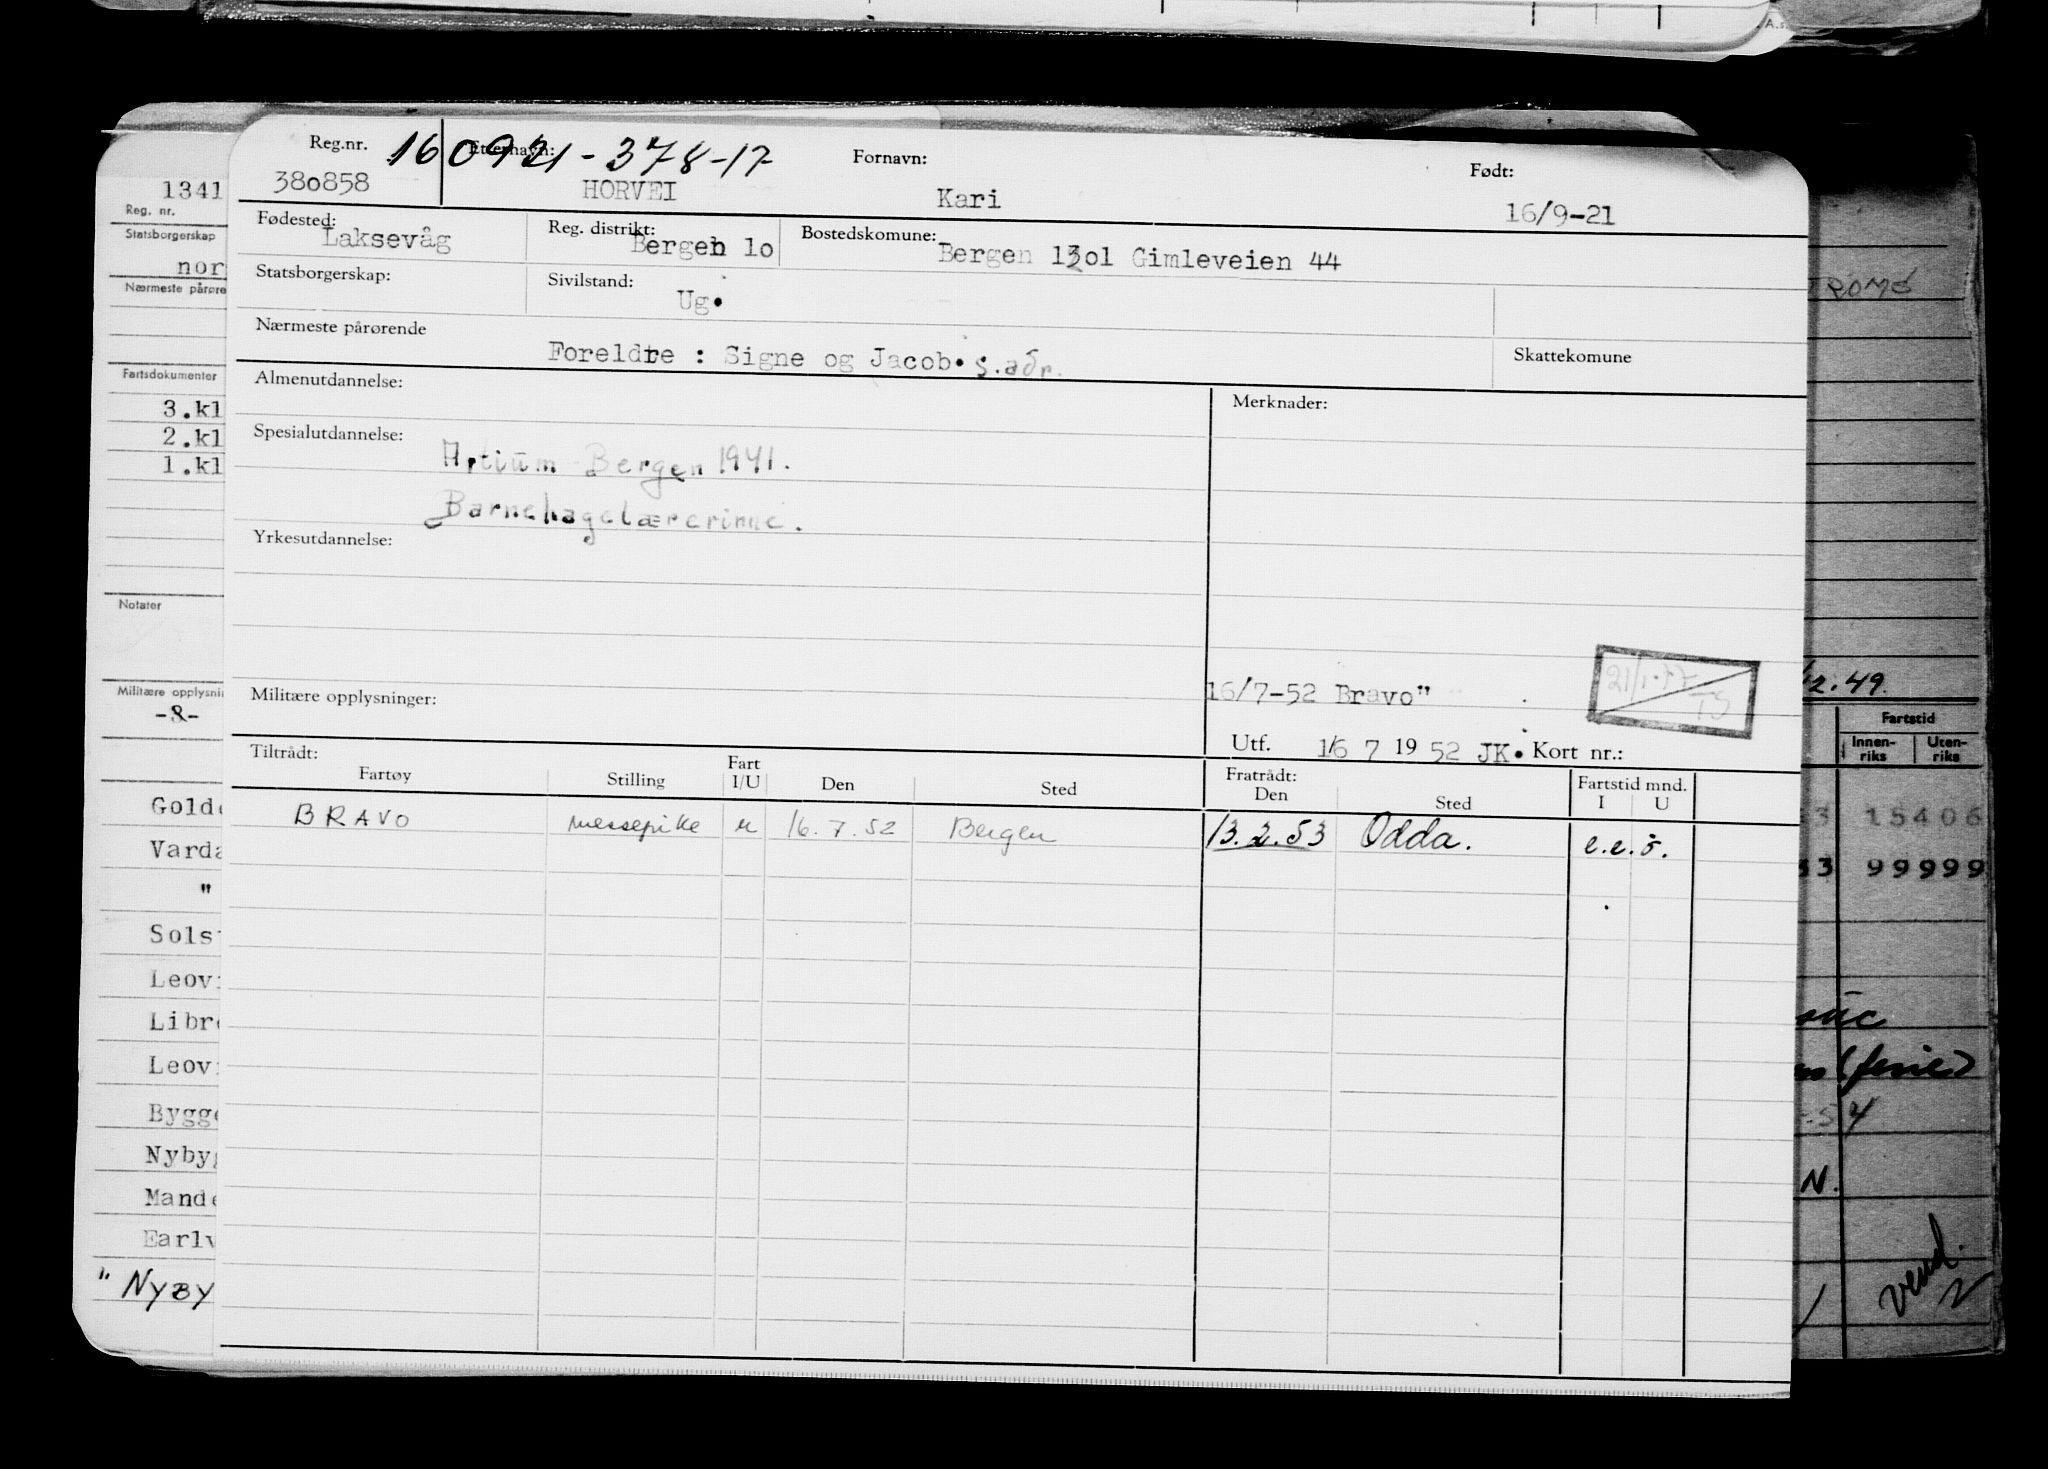 Reg.nr. 160921-378-17 Etternavn: Fornavn: Født:
380858 HORVEI Kari 16/9-21
Fødested: Laksevåg Reg. distrikt: Bergen 10 Bostedskommune: Bergen 1301 Gimleveien 44
Statsborgerskap: Sivilstand: Ug.
Nærmeste pårørende Foreldre : Signe og Jacob. s.adr. Skattekomune
Almenutdannelse: Merknader:
Spesialutdannelse: Artium Bergen 1941.
Barnehagelærerinne.
Yrkesutdannelse:
Militære opplysninger: 16/7-52 Bravo" 21/1-57 TS
Utf. 16 7 1952 JK. Kort nr.:
Tiltrådt: Fratrådt: Fartstid mnd.
Fartøy Stilling Fart I/U Den Sted Den Sted I U
BRAVO messepike u 16.7.52 Bergen 13.2.53 Odda. e.e.ö.
1341
Reg. nr.
Statsborgerskap
nor
Nærmeste pårøre
Fartsdokumenter
3.kl
2.kl
1.kl
Notater
Militære opplysni
-8-
Golde
Varda
"
Sols
Leov
Libre
Leov
Bygge
Nybyg
Mande
Earlv
" NYBY
TROMS
2.49.
Fartstid
Innen-riks Uten-riks
3 15406
33 99999
(ferie)
54
N.
vend.